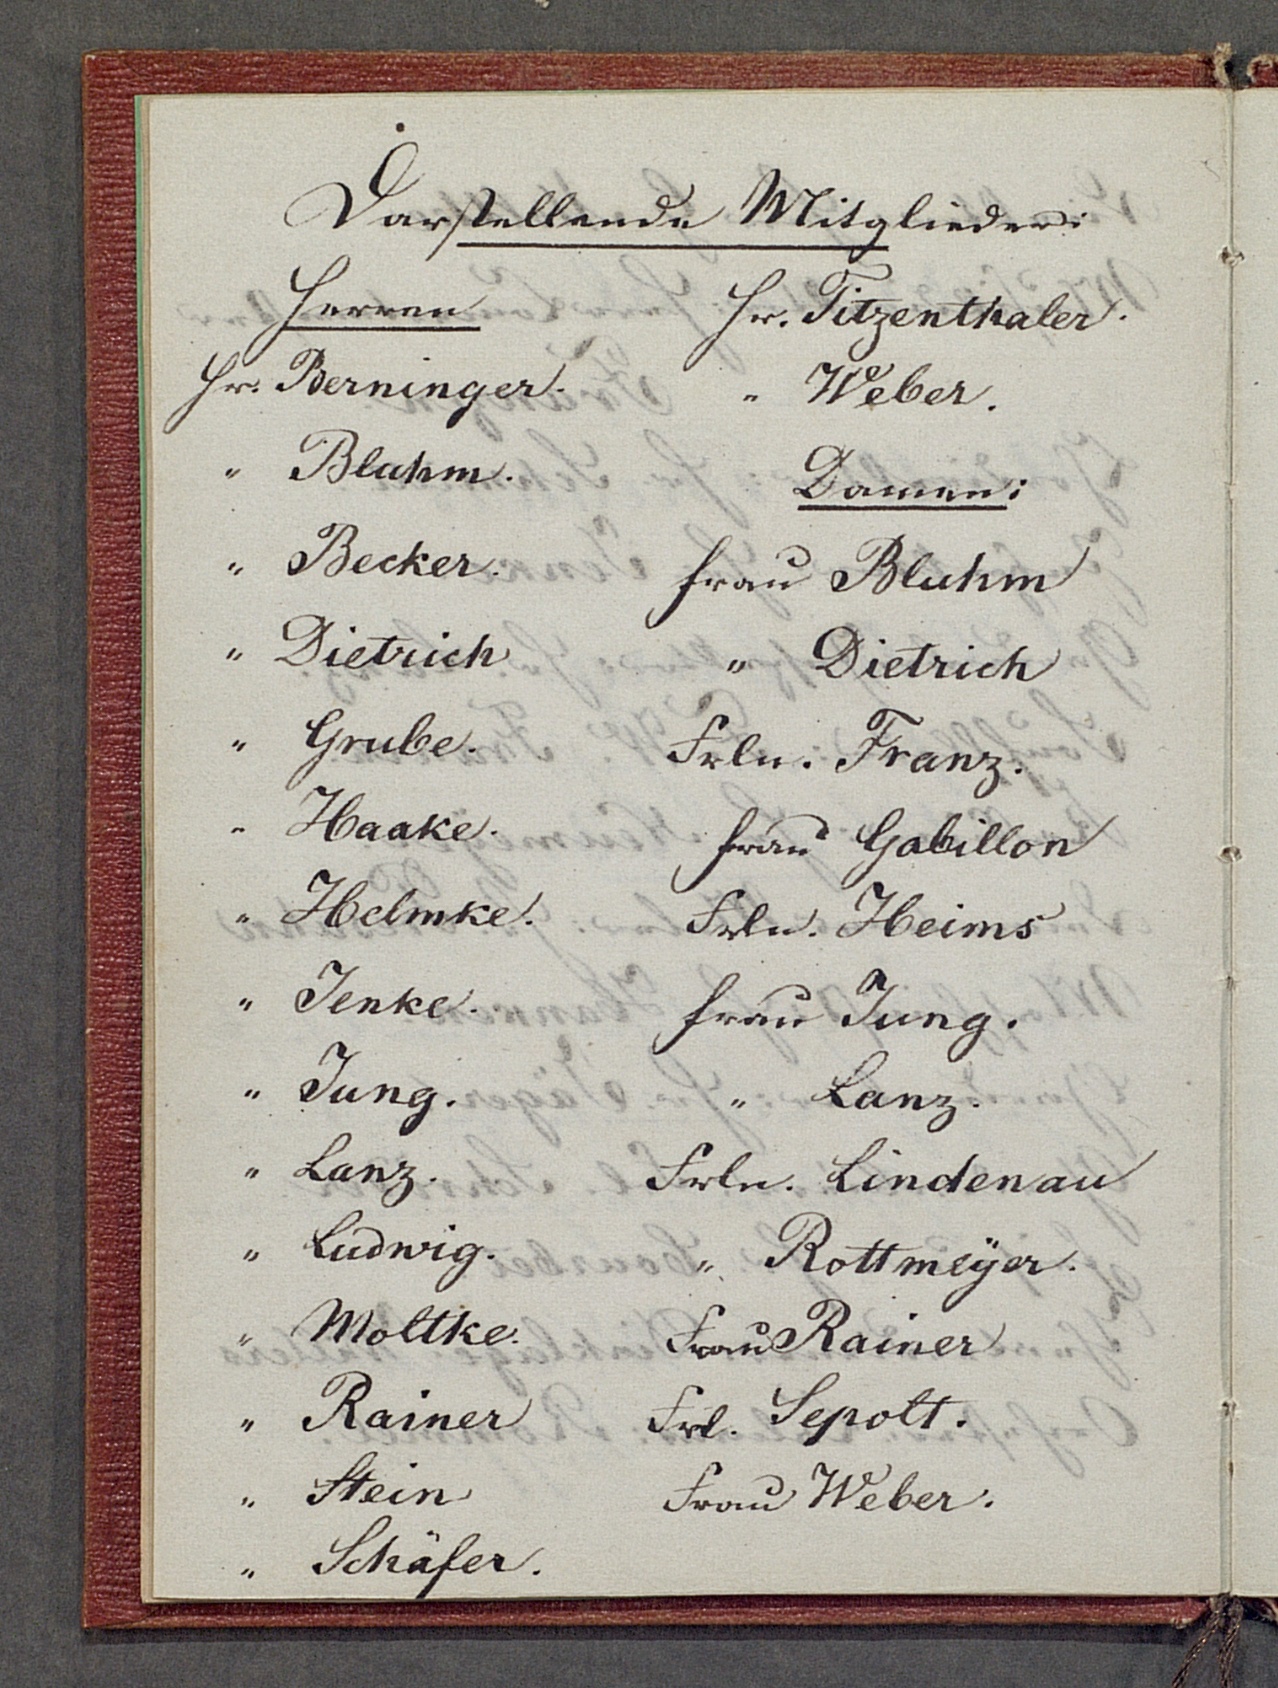 Darstellende Mitglieder:
Herren
Hr. Berninger.
" Bluhm.
" Becker.
" Dietrich
" Grube.
" Haake.
" Helmke.
" Jenke.
" Jung.
" Lanz.
" Ludwig.
" Moltke.
" Rainer
" Stein
" Schäfer.
Hr. Titzenthaler.
" Weber.
Damen:
Frau Bluhm
" Dietrich
Frln. Franz.
Frau Gabillon
Frln. Heims
Frau Jung.
" Lanz.
Frln. Lindenau
" Rottmeÿer.
Frau Rainer
Frl. Sepolt.
Frau Weber.